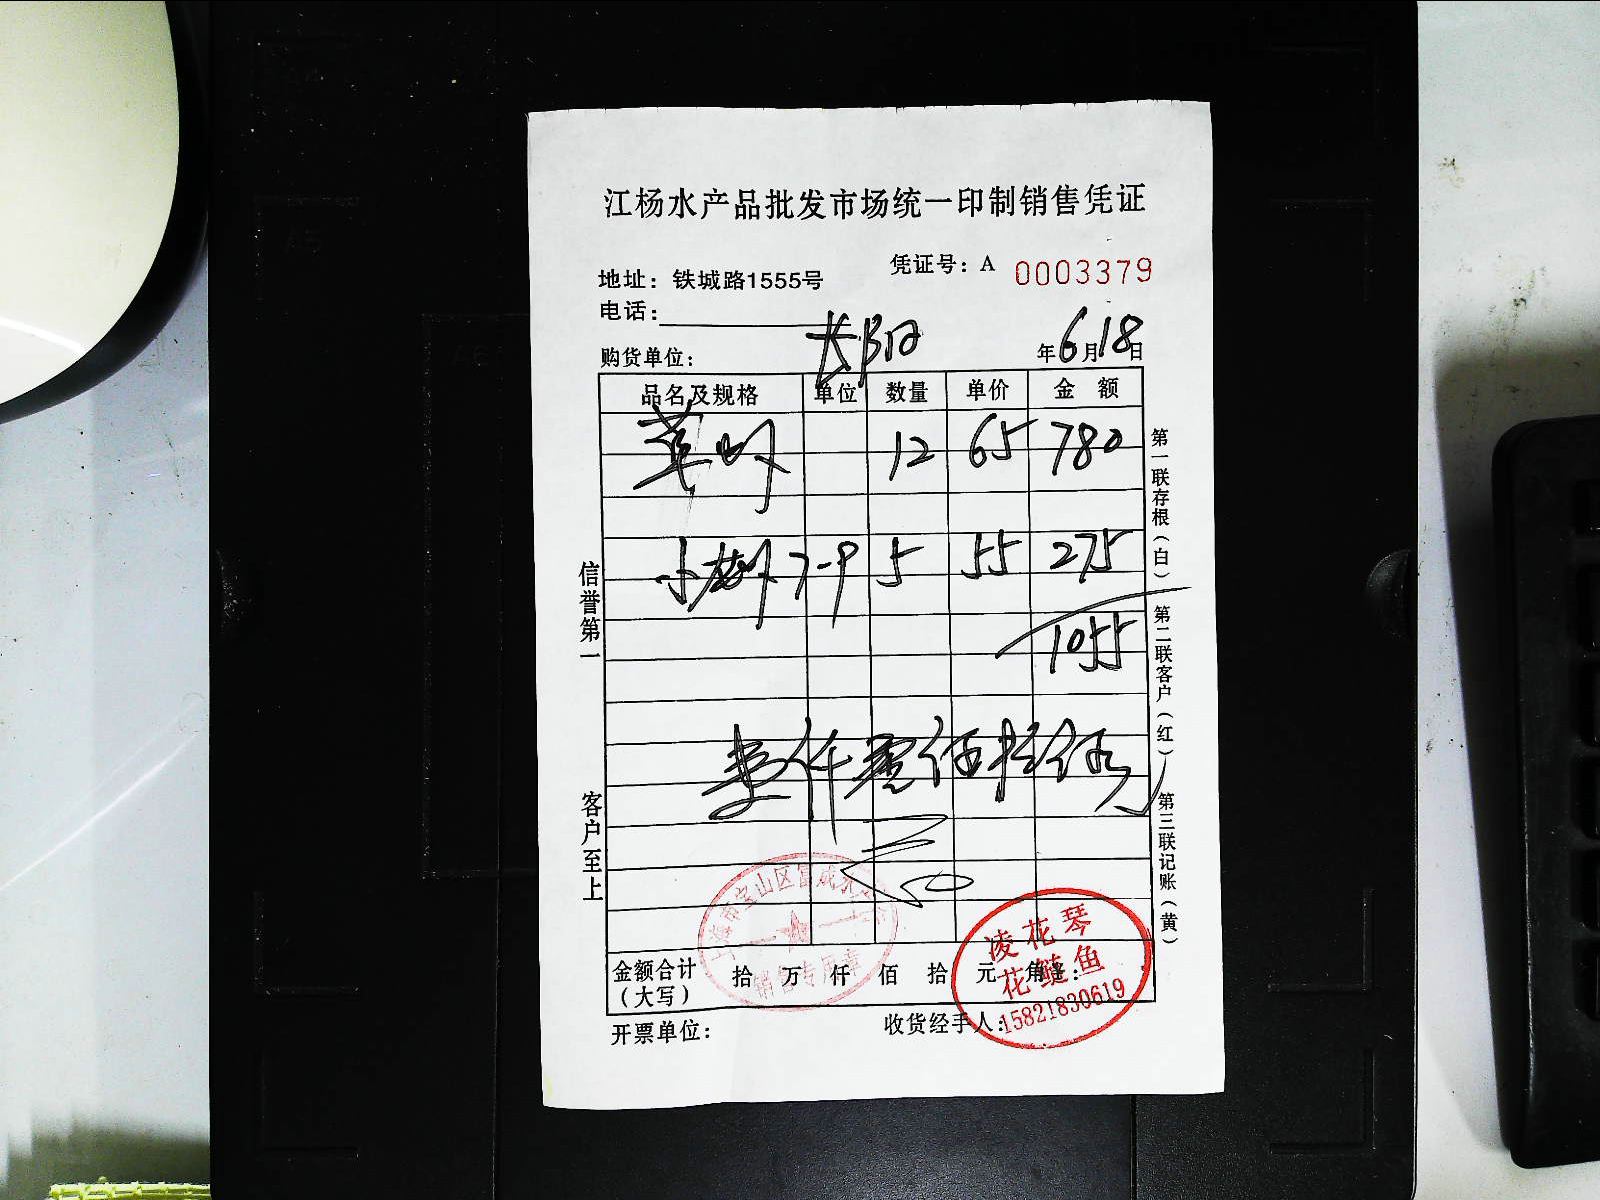 江杨水产品批发市场统一印制销售凭证
凭证号：A 0003379
地址：铁城路1555号
电话：
购货单位： 长阳 年6月18日
品名及规格 单位 数量 单价 金 额
12 65 780
小 7-9 5 55 275
1055
金额合计（大写） 拾 万 仟 佰 拾 元 角
开票单位： 收货经手人：
信誉第一
客户至上
第一联存根（白） 第二联客户（红） 第三联记账（黄）
上海市宝山区富成水
销售专用章
凌花琴
花鲢鱼
15821830619